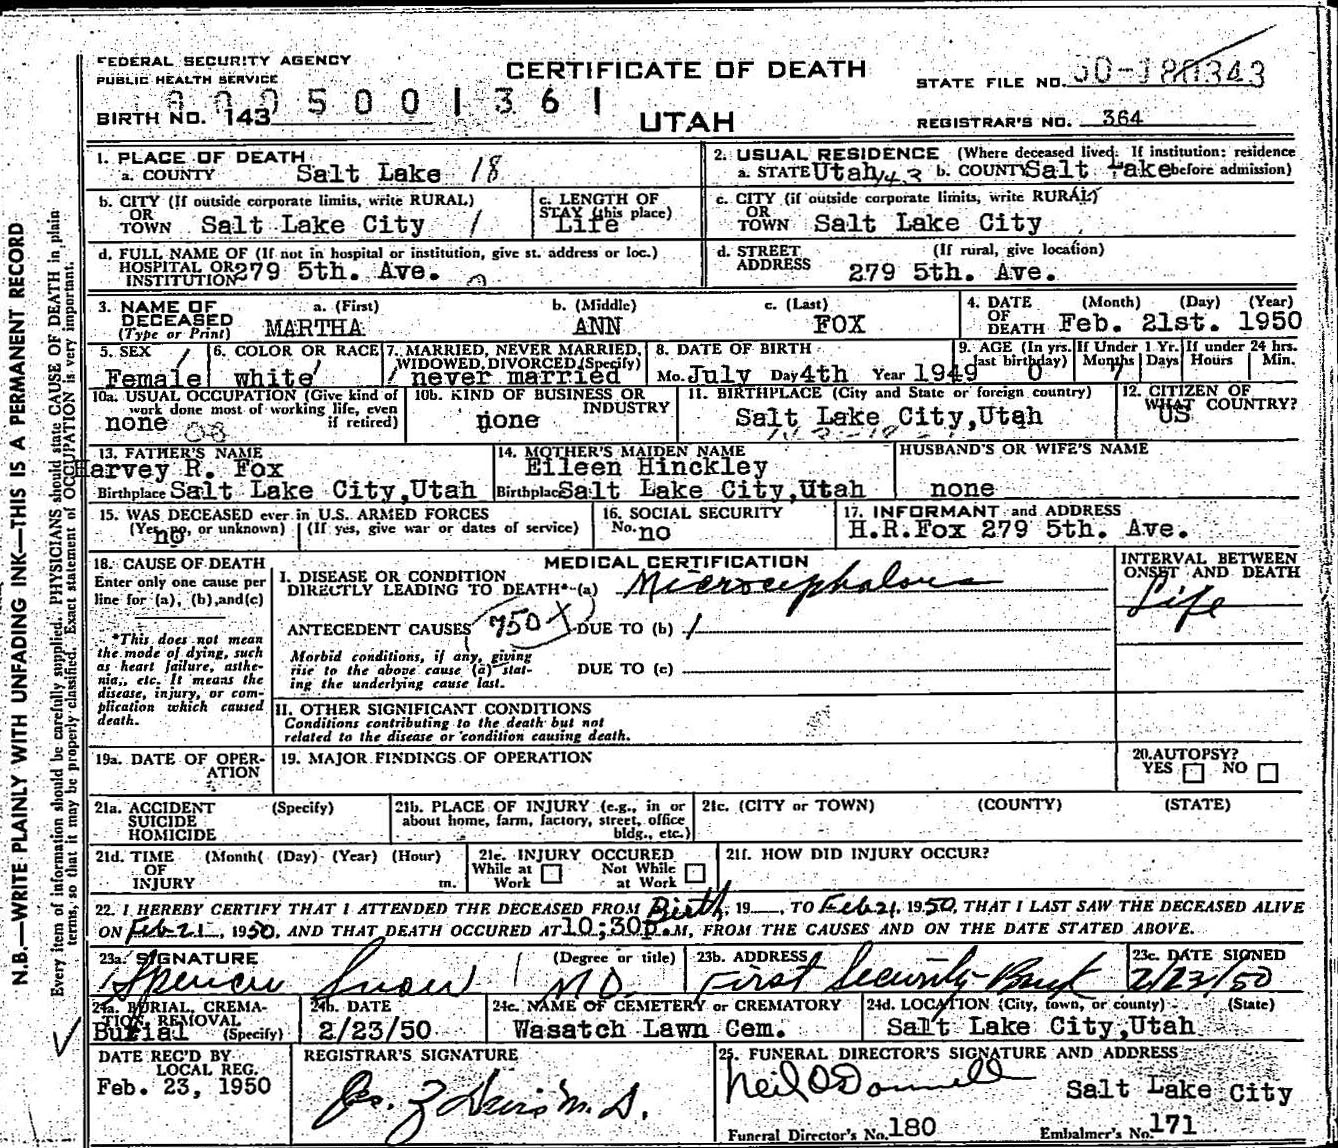 FEDERAL SECURITY AGENCY
PUBLIC HEALTH SERVICE
CERTIFICATE OF DEATH
UTAH
STATE FILE NO. 50-180343
0005001361
BIRTH NO. 143
REGISTRAR'S NO. 364
N.B.—WRITE PLAINLY WITH UNFADING INK—THIS IS A PERMANENT RECORD
Every item of information should be carefully supplied. PHYSICIANS should state CAUSE OF DEATH in plain
terms, so that it may be properly classified. Exact statement of OCCUPATION is very important.
1. PLACE OF DEATH
a. COUNTY Salt Lake 18
2. USUAL RESIDENCE (Where deceased lived. If institution: residence
a. STATE Utah 143 b. COUNTY Salt Lake before admission)
b. CITY (If outside corporate limits, write RURAL)
OR
TOWN Salt Lake City 1
c. LENGTH OF
STAY (this place)
Life
c. CITY (if outside corporate limits, write RURAL)
OR
TOWN Salt Lake City
d. FULL NAME OF (If not in hospital or institution, give st. address or loc.)
HOSPITAL OR
INSTITUTION 279 5th. Ave. 0
d. STREET (If rural, give location)
ADDRESS 279 5th. Ave.
3. NAME OF a. (First) b. (Middle) c. (Last)
DECEASED
(Type or Print) MARTHA ANN FOX
4. DATE (Month) (Day) (Year)
OF
DEATH Feb. 21st. 1950
5. SEX
Female
6. COLOR OR RACE
white
7. MARRIED, NEVER MARRIED,
WIDOWED, DIVORCED (Specify)
never married
8. DATE OF BIRTH
Mo. July Day 4th Year 1949
9. AGE (In yrs. If Under 1 Yr. If under 24 hrs.
last birthday) Months Days Hours Min.
0 7
10a. USUAL OCCUPATION (Give kind of
work done most of working life, even
if retired)
none
10b. KIND OF BUSINESS OR
INDUSTRY
none
11. BIRTHPLACE (City and State or foreign country)
Salt Lake City,Utah
12. CITIZEN OF
WHAT COUNTRY?
US
13. FATHER'S NAME
Harvey R. Fox
Birthplace Salt Lake City,Utah
14. MOTHER'S MAIDEN NAME
Eileen Hinckley
Birthplace Salt Lake City,Utah
HUSBAND'S OR WIFE'S NAME
none
15. WAS DECEASED ever in U.S. ARMED FORCES
(Yes, no, or unknown) (If yes, give war or dates of service)
no
16. SOCIAL SECURITY
No. no
17. INFORMANT and ADDRESS
H.R.Fox 279 5th. Ave.
18. CAUSE OF DEATH
Enter only one cause per
line for (a), (b),and(c)
*This does not mean
the mode of dying, such
as heart failure, asthe-
nia, etc. It means the
disease, injury, or com-
plication which caused
death.
MEDICAL CERTIFICATION
I. DISEASE OR CONDITION
DIRECTLY LEADING TO DEATH*(a) Microcephalous
INTERVAL BETWEEN
ONSET AND DEATH
Life
ANTECEDENT CAUSES 750X DUE TO (b)
Morbid conditions, if any, giving
rise to the above cause (a) stat-
ing the underlying cause last.
DUE TO (c)
II. OTHER SIGNIFICANT CONDITIONS
Conditions contributing to the death but not
related to the disease or condition causing death.
19a. DATE OF OPER-
ATION
19. MAJOR FINDINGS OF OPERATION
20. AUTOPSY?
YES NO
21a. ACCIDENT (Specify)
SUICIDE
HOMICIDE
21b. PLACE OF INJURY (e.g., in or
about home, farm, factory, street, office
bldg., etc.)
21c. (CITY or TOWN) (COUNTY) (STATE)
21d. TIME (Month( (Day) (Year) (Hour)
OF
INJURY m.
21e. INJURY OCCURED
While at Not While
Work at Work
21f. HOW DID INJURY OCCUR?
22. I HEREBY CERTIFY THAT I ATTENDED THE DECEASED FROM Birth, 19__, TO Feb 21, 1950, THAT I LAST SAW THE DECEASED ALIVE
ON Feb-21, 1950, AND THAT DEATH OCCURED AT 10;30p.M, FROM THE CAUSES AND ON THE DATE STATED ABOVE.
23a. SIGNATURE (Degree or title)
Spencer Snow MD
23b. ADDRESS
First Security Bank
23c. DATE SIGNED
2/23/50
24a. BURIAL, CREMA-
TION, REMOVAL
(Specify)
Burial
24b. DATE
2/23/50
24c. NAME OF CEMETERY or CREMATORY
Wasatch Lawn Cem.
24d. LOCATION (City, town, or county) (State)
Salt Lake City,Utah
DATE REC'D BY
LOCAL REG.
Feb. 23, 1950
REGISTRAR'S SIGNATURE
25. FUNERAL DIRECTOR'S SIGNATURE AND ADDRESS
Neil O'Donnell Salt Lake City
Funeral Director's No. 180 Embalmer's No. 171